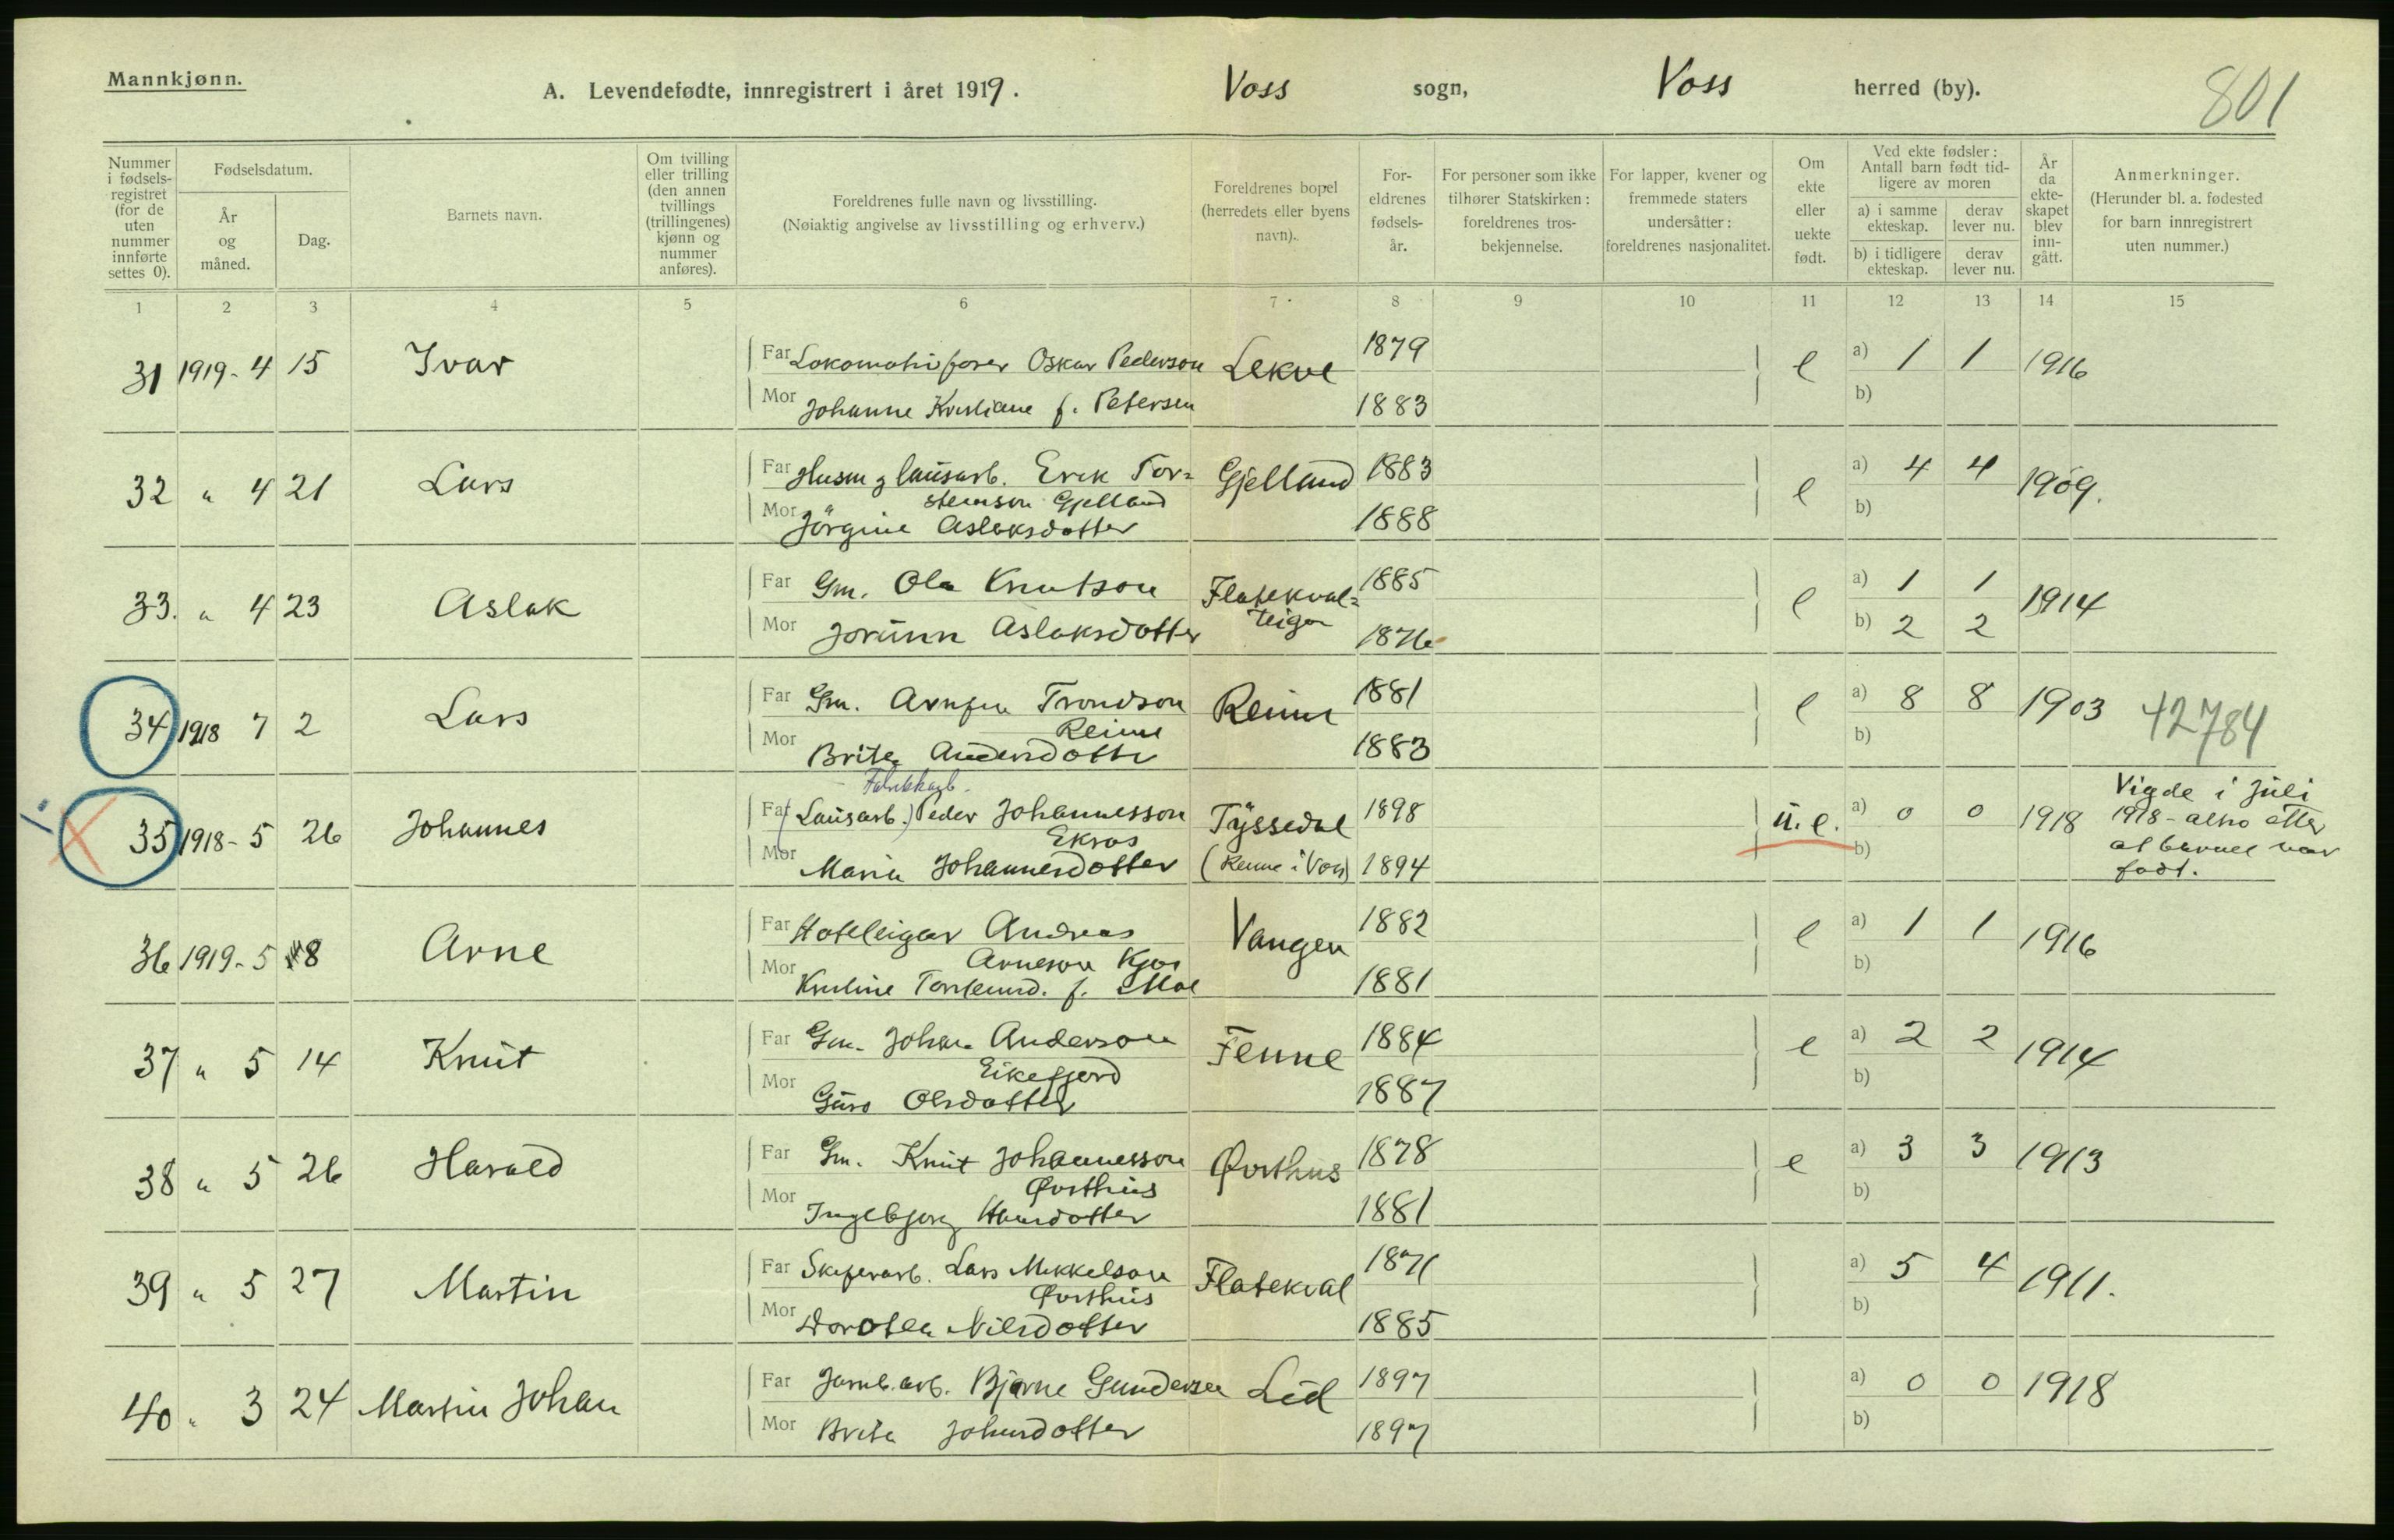 Mannkjønn.
A. Levendefødte, innregistrert i året 1919. Voss sogn, Voss herred (by).
801
Nummer i fødsels-registret (for de uten nummer innførte settes 0).
Fødselsdatum.
År og måned.
Dag.
Barnets navn.
Om tvilling eller trilling (den annen tvillings (trillingenes) kjønn og nummer anføres).
Foreldrenes fulle navn og livsstilling.
(Nøiaktig angivelse av livsstilling og erhverv.)
Foreldrenes bopel (herredets eller byens navn).
For-eldrenes fødsels-år.
For personer som ikke tilhører Statskirken: foreldrenes tros-bekjennelse.
For lapper, kvener og fremmede staters undersåtter: foreldrenes nasjonalitet.
Om ekte eller uekte født.
Ved ekte fødsler: Antall barn født tid-ligere av moren
a) i samme ekteskap.
derav lever nu.
b) i tidligere ekteskap.
derav lever nu.
År da ekte-skapet blev inn-gått.
Anmerkninger.
(Herunder bl. a. fødested for barn innregistrert uten nummer.)
1 2 3 4 5 6 7 8 9 10 11 12 13 14 15
31 1919-4 15 Ivar Far Lokomotivfører Oskar Pederson Lekve 1879 e a) 1 1 1916
Mor Johanne Kristiane f. Petersen 1883 b)
32 " 4 21 Lars Far Husm g lausarb. Erik Tor= Gjelland 1883 e a) 4 4 1909.
steinson Gjelland
Mor Jørgine Aslaksdotter 1888 b)
33. " 4 23 Aslak Far Gm. Ola Knutson Flatekval= 1885 e a) 1 1 1914
teigen
Mor Jorunn Aslaksdotter 1876 b) 2 2
34 1918 7 2 Lars Far Gm. Arnfin Trondson Reime 1881 e a) 8 8 1903 42784
Reime
Mor Brita Andersdotter 1883 b)
Fabrikkarb.
35 1918-5 26 Johannes Far (Lausarb.) Peder Johannesson Tyssedal 1898 u.e. a) 0 0 1918
Ekras
Mor Maria Johannesdotter (Renne i Voss) 1894 b)
Vigde i juli
1918 - altso etter
at barnet var
født.
36 1919-5 8 Arne Far Hotelleigar Andreas Vangen 1882 e a) 1 1 1916
Arneson Kjos
Mor Kristine Torsteinsd. f. Moe 1881 b)
37 " 5 14 Knut Far Gm. Johan Anderson Fenne 1884 e a) 2 2 1914
Eikefjord
Mor Guro Olsdotter 1887 b)
38 " 5 26 Harald Far Gm. Knut Johannesson Øvsthus 1878 e a) 3 3 1913
Øvsthus
Mor Ingebjørg Hansdotter 1881 b)
39 " 5 27 Martin Far Skiferarb. Lars Mikkelson Flatekval 1871 a) 5 4 1911.
Øvsthus
Mor Dorotea Nilsdotter 1885 b)
40 " 3 24 Martin Johan Far Jarnb.arb. Bjarne Gundersen Lid 1897 a) 0 0 1918
Mor Brita Johnsdotter 1897 b)